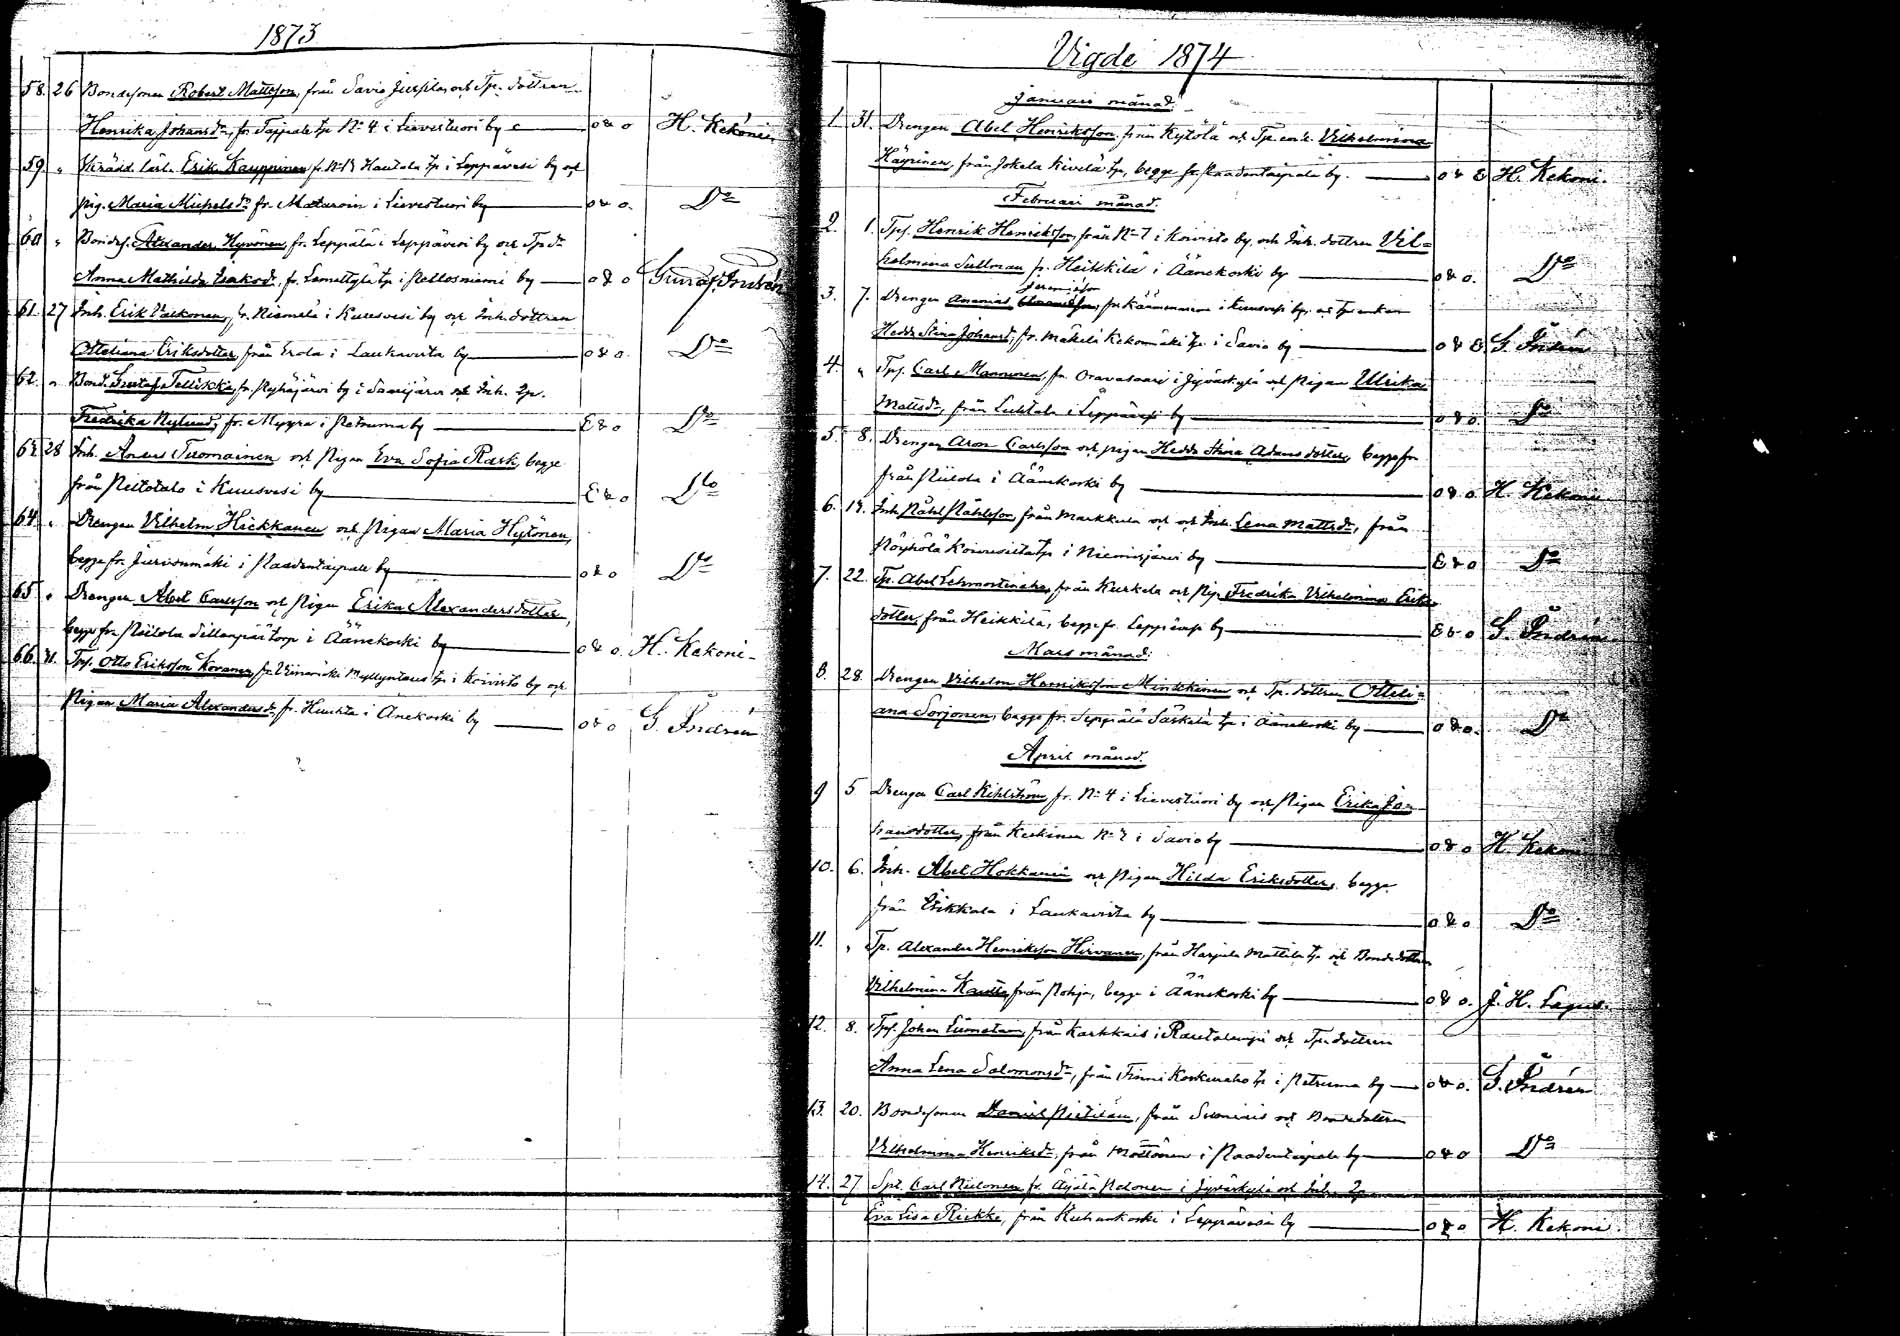 1873
58. 26 Bondesonen Robert Mattsson, från Savio Jussila och Tp. dottren
Henrika Johansdr, fr. Tajpale tp No 4 i Lievestuori by o & o H. Kekoni
59. " Skrädd. lärl. Erik Kauppinen fr. No 13 Hautala tp i Leppävesi by och
pig. Maria Michelsdr fr. Mataroin i Lievestuori by o & o. Do
60 " Bondes. Alexander Hyvönen, fr. Leppälä i Leppävesi by och Tp. dr
Anna Mathilda Isaksdr, fr. Lamettylä tp i Pellosniemi by o & o Gustaf Indrén
61. 27 Inh. Erik Valkonen, fr. Niemelä i Kuusvesi by och Inh. dottren
Otteliana Eriksdotter, från Erola i Laukavirta by o & o. Do
62. " Bond. Gustaf Tellikka, fr. Pyhäjärvi by i Saarijärvi och Inh.
Fredrika Nylund, fr. Myyrä i Petruma by E & o Do
63. 28 Inh. Anders Tuomainen och Pigan Eva Sofia Rask, begge
från Peltotalo i Kuusvesi by E & o Do
64. " Drengen Vilhelm Hickkanen och Pigan Maria Hytönen,
begge fr. Jurvonmäki i Paadentaipale by o & o Do
65. " Drengen Abel Carlsson och Pigan Erika Alexandersdotter,
begge fr. Niilola Sillanpää torp i Äänekoski by o & o. H. Kekoni
66. 31. Tps. Otto Eriksson Kovanen, fr. Viinamäki Myllyntaus tp i Koivisto by och
Pigan Maria Alexandersdr fr. Huukta i Änekoski by o & o G. Indrén
Vigde 1874
Januari månad.
1. 31. Drengen Abel Henriksson från Kytölä och Tp. enk. Vilhelmina
Häyrinen, från Jokela Kivelä tp, begge fr. Paadentaipale by. o & E H. Kekoni.
Februari månad.
2. 1. Tps. Henrik Henriksson, från No 7 i Koivisto by, och Inh. dottren Vil=
helmina Sullman fr. Heikkilä i Äänekoski by o & o. Do
3. 7. Drengen Ananias Jeremiasson, fr. Käämänen i Kuusvesi by, och Tp. enkan
Hedda Stina Johansdr, fr. Mäkelä Kekomäki tp. i Savio by o & E. G. Indrén
4. " Tps. Carl Manninen, fr. Oravasaari i Jyväskylä och Pigan Ulrika
Mattsdr, från Luhtala i Leppävesi by o & o. Do
5. 8. Drengen Aron Carlsson och pigan Hedda Stina Adamsdotter, begge fr
från Niilola i Äänekoski by o & o. H. Kekoni
6. 13. Inh. Påhl Påhlsson, från Markkula och Inh. Lena Mattsdr, från
Pöyhölä Koivusilta tp i Niemisjärvi by E & o Do
7. 22. Tp. Abel Lehmostenaho, från Kurkela och Pig. Fredrika Vilhelmina Eriks
dotter, från Heikkilä, begge fr. Leppävesi by E & o G. Indrén
Mars månad:
8. 28. Drengen Vilhelm Henriksson Minkkinen och Tp. dottren Otteli=
ana Sorjonen, begge fr. Seppälä Säskelä tp i Äänekoski by o & o. Do
April månad.
9 5 Drengen Carl Kihlström fr. No 4 i Lievestuori by och Pigan Erika Jo=
hansdotter, från Keskinen No 7 i Savio by o & o H. Kekoni
10. 6. Inh. Abel Hokkanen och Pigan Hilda Eriksdotter, begge
från Erikkala i Laukavirta by o & o Do
11. " Tp. Alexander Henriksson Hirvanen, från Harjula Mattila tp och Bondedottren
Vilhelmina Kautto, från Pohja, begge i Äänekoski by o & o. J. H. Lagus.
12. 8. Tps. Johan Liimatain, från Karkkais i Rautalampi och Tp. dottren
Anna Lena Salomonsdr, från Finni Koskenaho tp i Petruma by o & o. G. Indrén
13. 20. Bondesonen Daniel Pietiläin, från Suoniais och Bondedottren
Vilhelmina Henriksdr, från Möttönen i Paadentaipale by o & o Do
14. 27 Spt. Carl Nielonen, fr. Äijälä Pelonen i Jyväskylä och Inh.
Eva Lisa Riekko, från Kuhankoski i Leppävesi by o & o H. Kekoni.